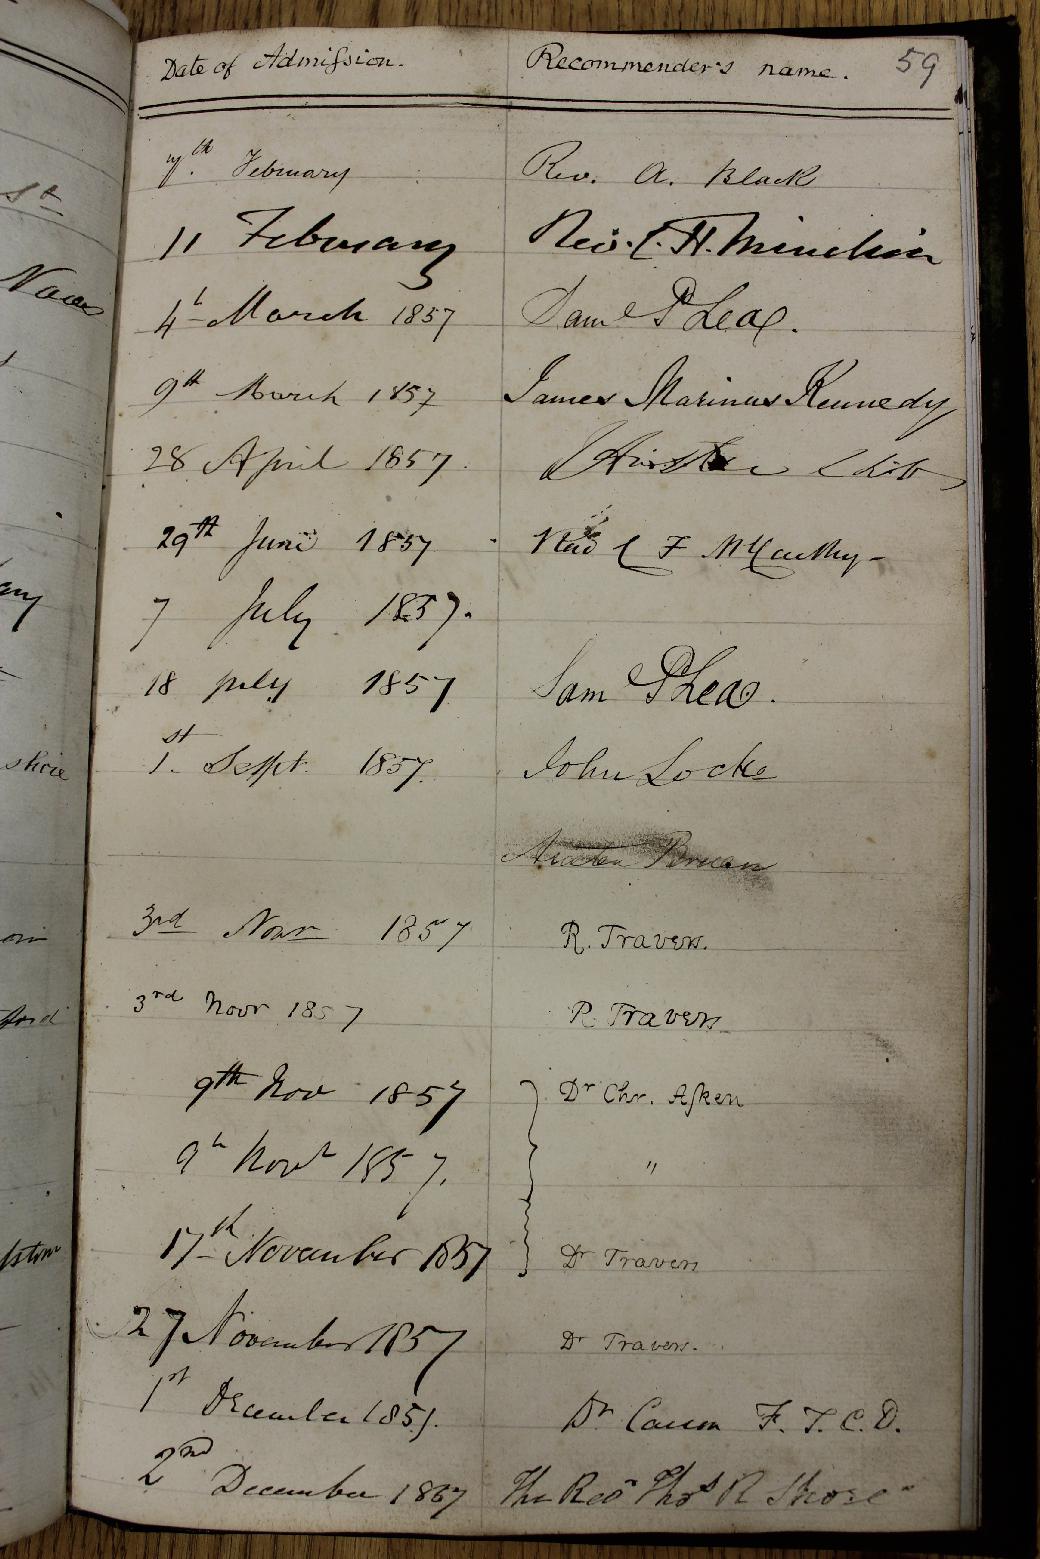 59
Date of Admission. Recommender's name.
7th. February Rev. A. Black
11 February Rev. C. H. Minchin
4th March 1857 Saml P Lea
9th March 1857 James Marinus Kennedy
28 April 1857.
29th June 1857 Revd C F McCarthy
7 July 1857.
18 July 1857 Sam P Lea.
1st. Sept. 1857. John Locke
3rd Novr 1857 R. Travers.
3rd Novr 1857 R. Travers
9th Nov 1857 Dr Chr. Asken
9th Novr 1857. "
17th November 1857 Dr Travers
27 November 1857 Dr Travers.
1st December 1857. Dr Carson F. T. C. D.
2nd December 1857 The Revd Thos R Shore